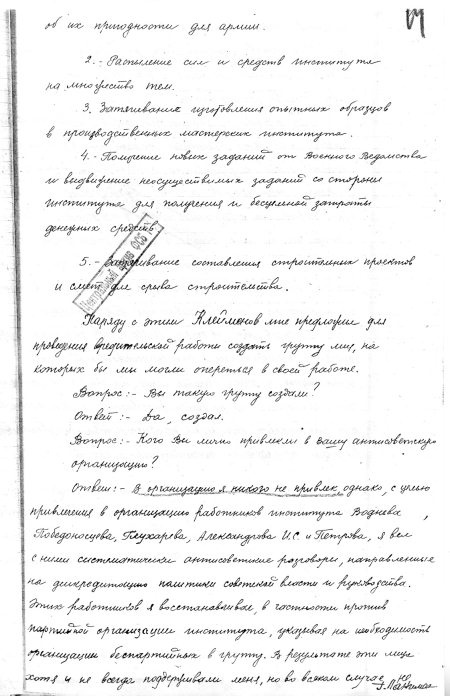 об их пригодности для армии.
2. - Распыление сил и средств института
на множество тем.
3. Затягивание изготовления опытных образцов
в производственных мастерских института.
4. - Получение новых заданий от Военного Ведомства
и выдвижение неосуществимых заданий со стороны
института для получения и бесцельной затраты
денежных средств.
5. - Затягивание составления строительных проектов
и смет для срыва строительства.
Центральный архив ФСБ
Наряду с этим Клейменов мне предложил для
проведения вредительской работы создать группу лиц, на
которых бы мы могли опереться в своей работе.
Вопрос: - Вы такую группу создали?
Ответ: - Да, создал.
Вопрос: - Кого Вы лично привлекли в Вашу антисоветскую
организацию?
Ответ: - В организацию я никого не привлек, однако, с целью
привлечения в организацию работников института Воднева,
Победоносцева, Глухарева, Александрова И.С. и Петрова, я вел
с ними систематически антисоветские разговоры, направленные
на дискредитацию политики советской власти и руководства.
Этих работников я восстанавливал, в частности против
партийной организации института, указывая на необходимость
организации беспартийных в группу. В результате эти лица
хотя и не всегда поддерживали меня, но во всяком случае не
Г. Лангемак